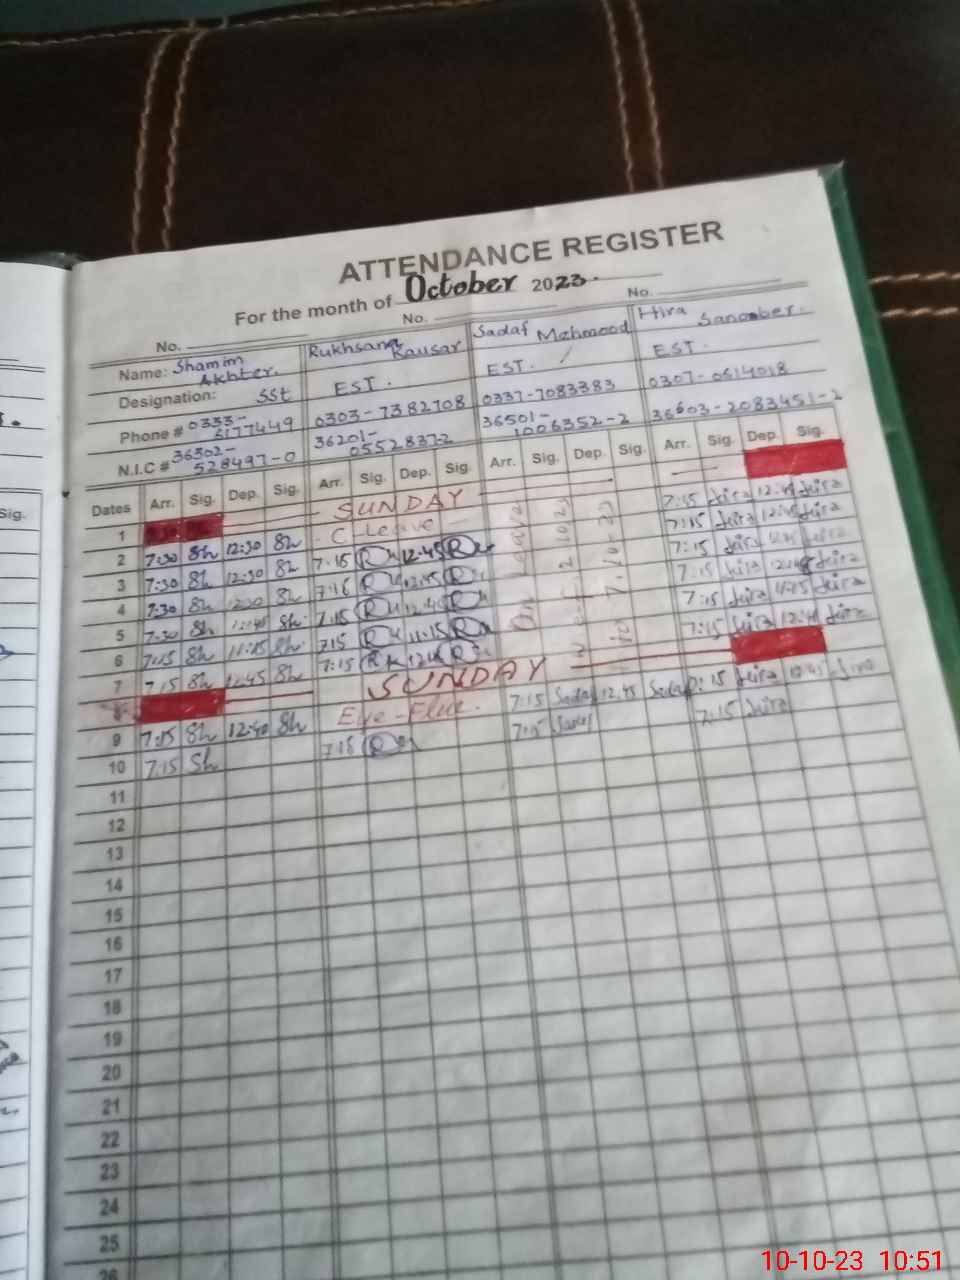 ATTENDANCE REGISTER
For the month of October 2023.
No. No. No.
Name: Shamim Akhter. Rukhsana Kausar Sadaf Mehmood Hira Sanober.
Designation: SSt EST. EST. EST.
Phone # 0333-5177449 0303-7382708 0337-7083383 0307-0614018
N.I.C # 36302-528497-0 36201-0552837-2 36501-1006352-2 36603-2083451-2
Dates Arr. Sig. Dep. Sig. Arr. Sig. Dep. Sig. Arr. Sig. Dep. Sig. Arr. Sig. Dep. Sig.
1 SUNDAY
2 7:30 Sh 12:30 Sh C-Leave 7:15 Hira 12:45 Hira
3 7:30 Sh 12:30 Sh 7:15 12:45 7:15 Hira 12:45 Hira
4 7:30 Sh 12:30 Sh 7:15 12:45 7:15 Hira 12:45 Hira
5 7:30 Sh 12:45 Sh 7:15 12:45 7:15 Hira 12:45 Hira
6 7:15 Sh 11:15 Sh 7:15 11:15 7:15 Hira 11:15 Hira
7 7:15 Sh 12:45 Sh 7:15 7:15 Hira 12:45 Hira
On Leave
SUNDAY
9 7:15 Sh 12:40 Sh Eye-Flue. 7:15 Sadaf 12:45 Sadaf 7:15 Hira 12:45 Hira
10 7:15 Sh 7:15 7:15 Sadaf 7:15 Hira
11
12
13
14
15
16
17
18
19
20
21
22
23
24
25
26
Sig.
10-10-23 10:51